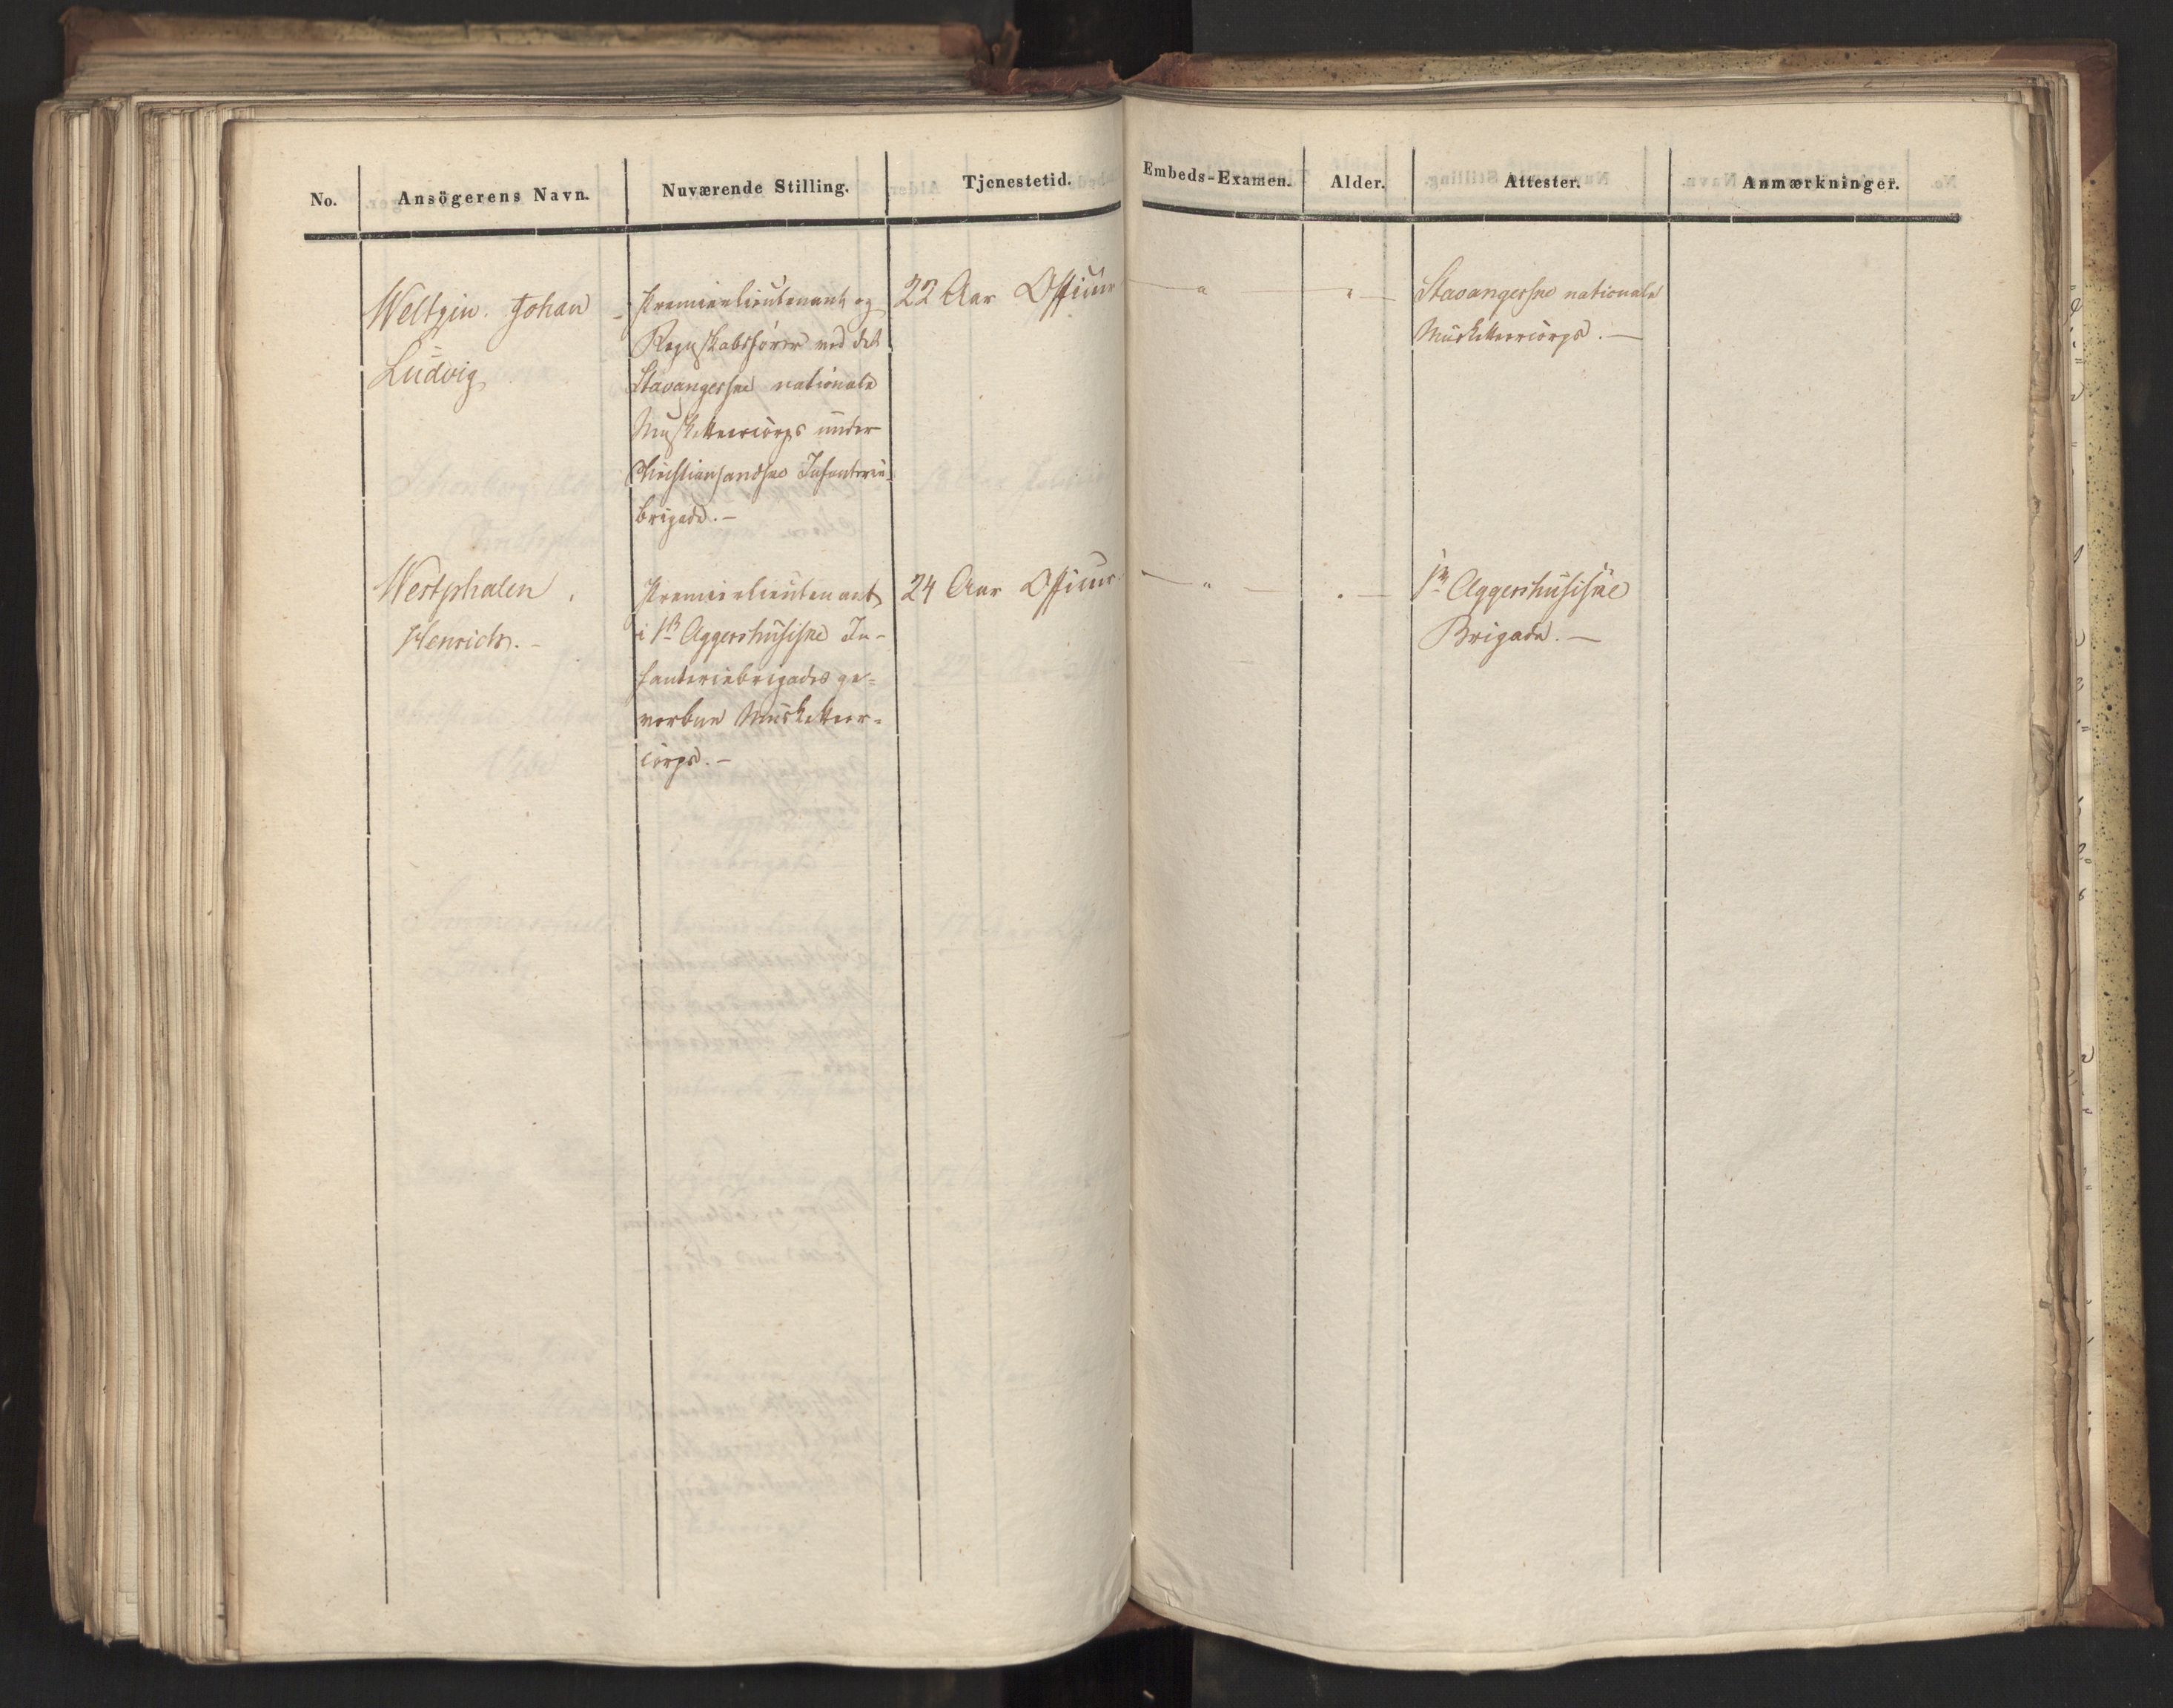 No. Ansögerens Navn. Nuværende Stilling. Tjenestetid. Embeds-Examen. Alder. Attester. Anmærkninger.
Weltzin. Johan
Ludvig
Premierlieutenant og
Regnskabsförer ved det
Stavangerske nationale
Musketteercorps under
Christiansandske Infanterie-
brigade.—
22 Aar Officier — " — " —
Stavangerske nationale
Musketteercorps.—
Westphalen,
Henrich.—
Premierlieutenant
i 1ste Aggershusiske In-
fanteriebrigades ge-
vorbne Musketteer-
corps.—
24 Aar Officier — " — " —
1ste Aggershusiske
Brigade.—